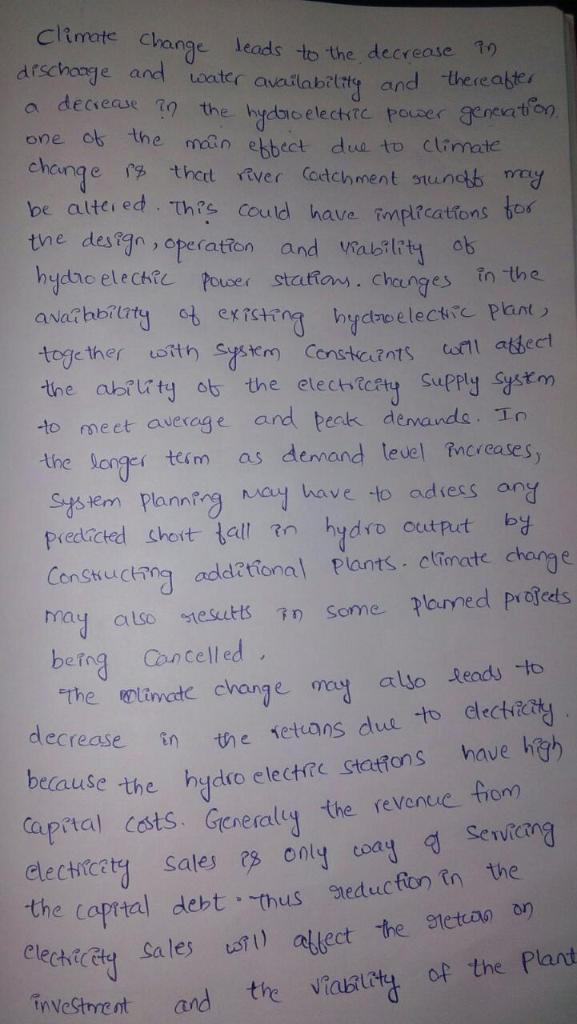 Climate change leads to the decrease in
discharge and water availability and thereafter
a decrease in the hydroelectric power generation.
one of the main effect due to climate
change is that river catchment runoff may
be altered. This could have implications for
the design, operation and viability of
hydroelectric power stations. changes in the
availability of existing hydroelectric plant,
together with system constraints will affect
the ability of the electricity supply system
to meet average and peak demands. In
the longer term as demand level increases,
system planning may have to adress any
predicted short fall in hydro output by
constructing additional plants. climate change
may also results in some planned projects
being cancelled.
The climate change may also leads to
decrease in the returns due to electricity.
because the hydro electric stations have high
capital costs. Generally the revenue from
electricity sales is only way of servicing
the capital debt. Thus reduction in the
electricity sales will affect the return on
investment and the viability of the plant